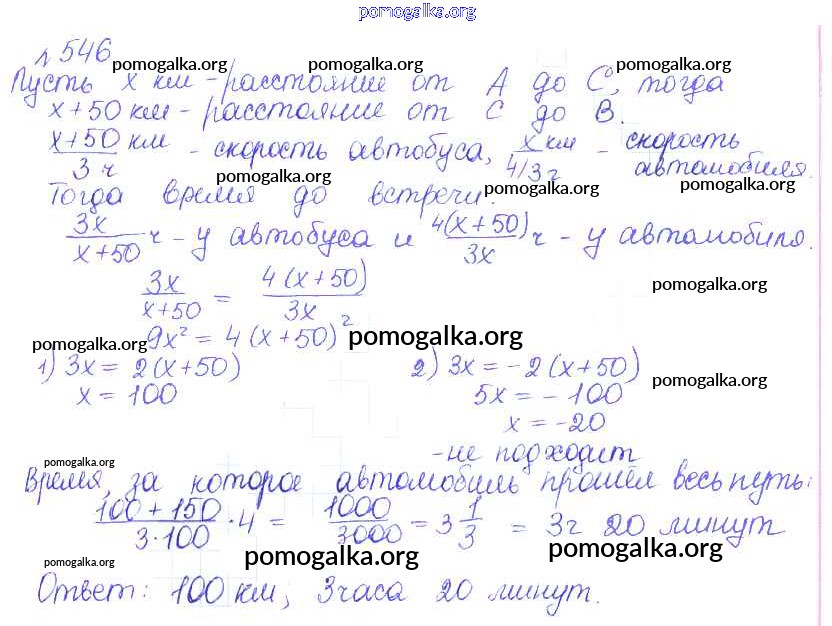 pomogalka.org
№ 546
pomogalka.org pomogalka.org pomogalka.org
Пусть x км - расстояние от A до C, тогда
x+50 км - расстояние от C до B.
x+50/3 км/ч - скорость автобуса, x/4/3 км/ч - скорость автомобиля.
pomogalka.org pomogalka.org
Тогда время до встречи:
3x/x+50 ч - у автобуса и 4(x+50)/3x ч - у автомобиля.
3x/x+50 = 4(x+50)/3x
pomogalka.org
9x² = 4(x+50)²
pomogalka.org pomogalka.org
1) 3x = 2(x+50) 2) 3x = -2(x+50)
pomogalka.org
x = 100 5x = -100
x = -20
- не подходит
pomogalka.org pomogalka.org
Время, за которое автомобиль прошёл весь путь:
100+150/3·100 · 4 = 1000/3000 = 3 1/3 = 3ч 20 минут
pomogalka.org pomogalka.org
Ответ: 100 км; 3 часа 20 минут.